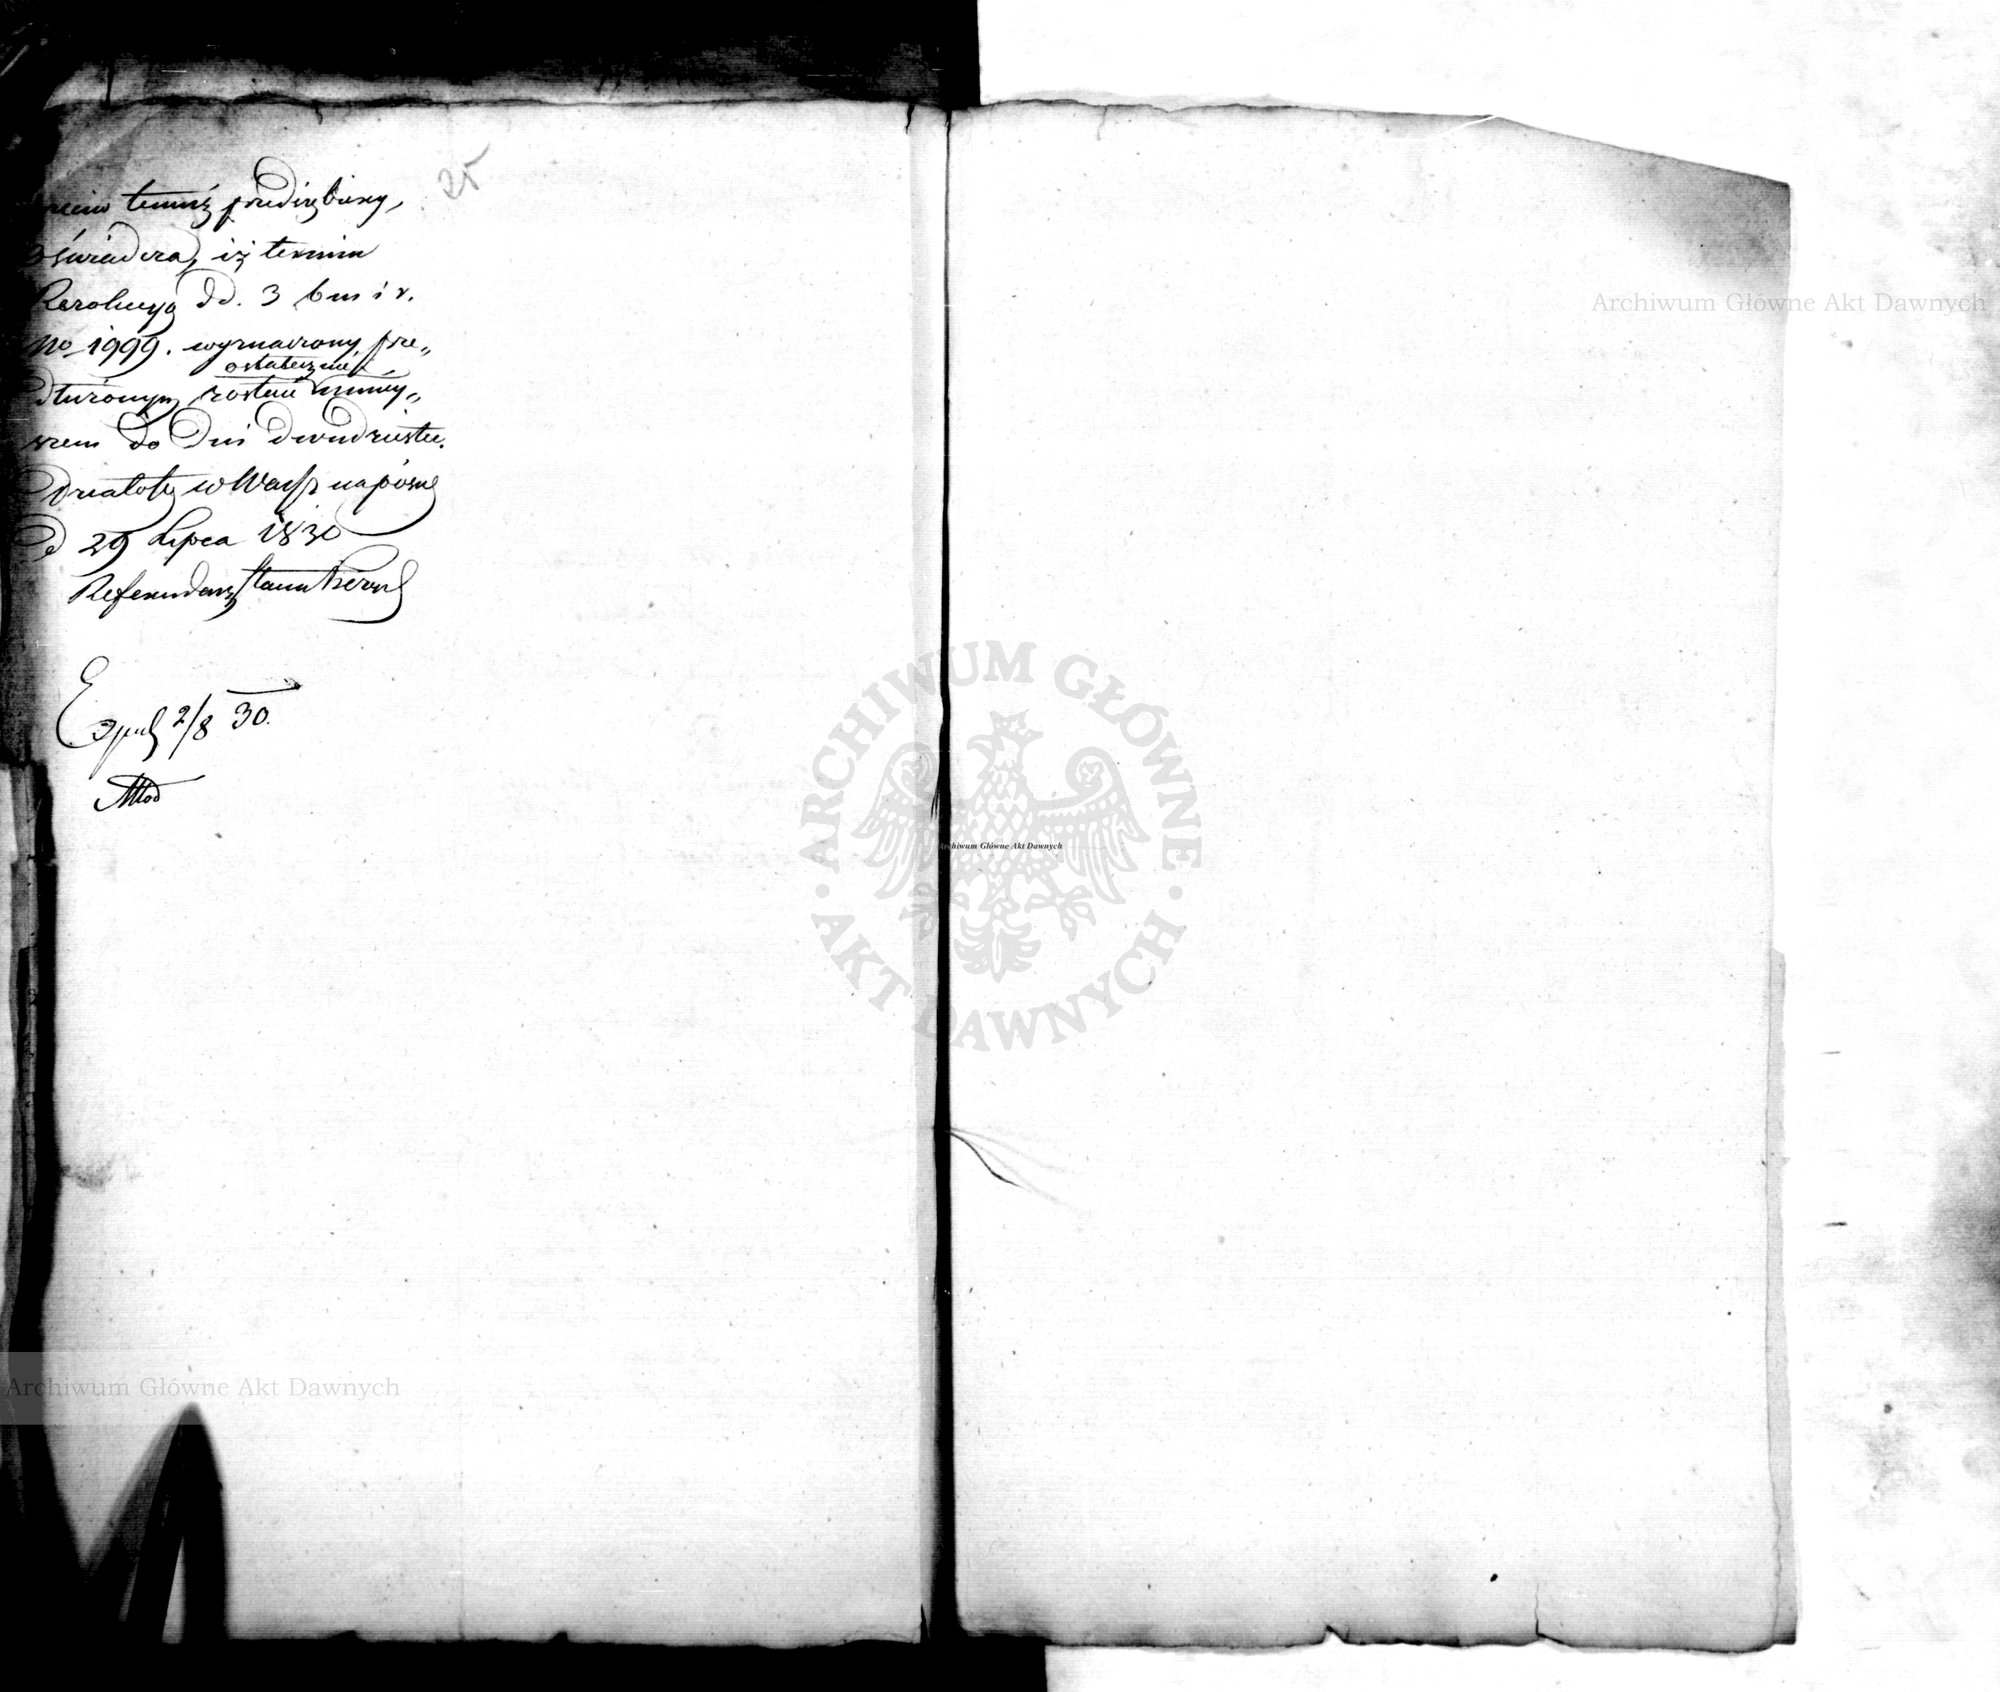 25
temuż przedsiębiercy,
oświadcza, iż termin
Rezolucyą dd. 3 bm i r.
No 1999. wyznaczony prze„
dłużonym zostaie niniey„
ostatecznie
szem do Dni dwudziestu.
Działo się w Warsz
d 29 Lipca 1830
Referendarz Stanu
Exped 2/8 30.
Młod
Archiwum Główne Akt Dawnych
ARCHIWUM GŁÓWNE
AKT DAWNYCH
Archiwum Główne Akt Dawnych
Archiwum Główne Akt Dawnych